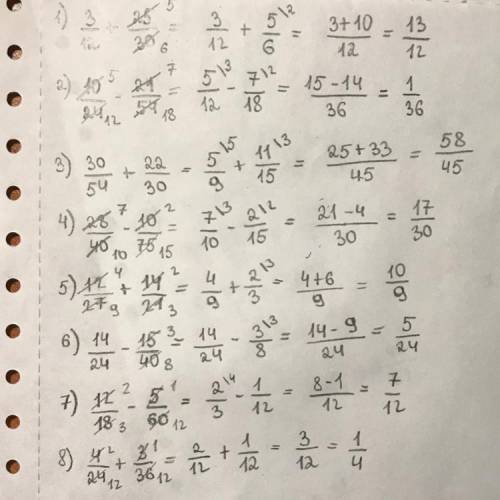 1) 3/12 + 25\5/30 6 = 3/12 + 5\2/6 = (3+10)/12 = 13/12
2) 10 5/24 12 - 21 7/54 18 = 5\3/12 - 7\2/18 = (15-14)/36 = 1/36
3) 30/54 + 22/30 = 5\5/9 + 11\3/15 = (25+33)/45 = 58/45
4) 28 7/40 10 - 10 2/75 15 = 7\3/10 - 2\2/15 = (21-4)/30 = 17/30
5) 12 4/27 9 + 14 2/21 3 = 4/9 + 2\3/3 = (4+6)/9 = 10/9
6) 14/24 - 15 3/40 8 = 14/24 - 3\3/8 = (14-9)/24 = 5/24
7) 12 2/18 3 - 5 1/60 12 = 2\4/3 - 1/12 = (8-1)/12 = 7/12
8) 4 2/24 12 + 3 1/36 12 = 2/12 + 1/12 = 3/12 = 1/4